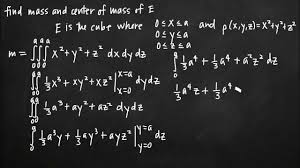 find mass and center of mass of E
E is the cube where 0 ≤ x ≤ a
0 ≤ y ≤ a
0 ≤ z ≤ a
and ρ(x,y,z)=x²+y²+z²
m = ∫₀ᵃ∫₀ᵃ∫₀ᵃ x²+y²+z² dx dy dz
∫₀ᵃ∫₀ᵃ 1/3 x³ + xy² + xz² |ₓ₌₀ˣ⁼ᵃ dy dz
∫₀ᵃ∫₀ᵃ 1/3 a³ + ay² + az² dy dz
∫₀ᵃ 1/3 a³y + 1/3 ay³ + ayz² |y=0 y=a dz
∫₀ᵃ 1/3 a⁴ + 1/3 a⁴ + a²z² dz
1/3 a⁴z + 1/3 a⁴